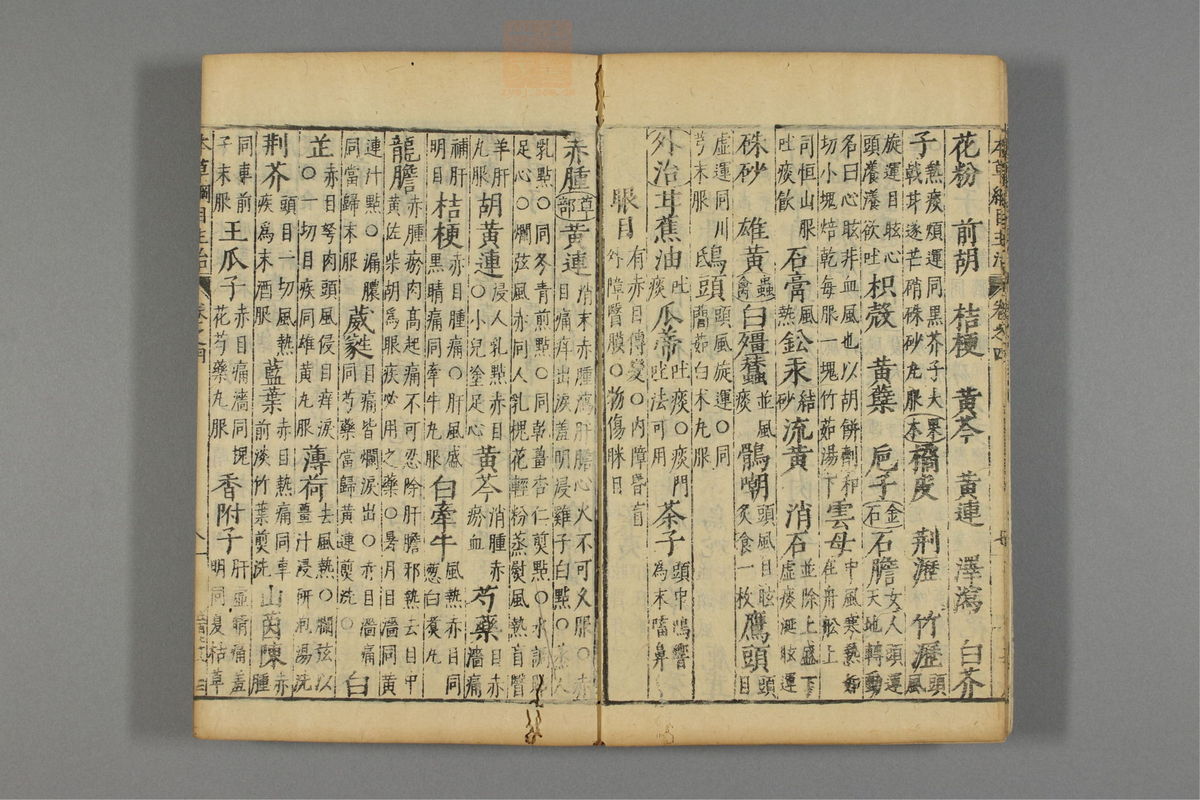 本草綱目主治 卷之四
花粉 前胡 桔梗 黃芩 黃連 澤瀉 白芥
子 熱痰煩運同黑芥子大戟芫遂芒硝硃砂丸服 寒木 橘皮 荆瀝 竹瀝 頭風
旋運目眩心頭瀁瀁欲吐 枳殼 黃蘗 巵子 金石 石膽 女人頭運天地轉動
名曰心眩非血風也以胡餅劑和切小塊焙乾每服一塊竹茹湯下 雲母 中風寒熱如在舟船上
同恒山服吐痰飲 石膏 風熱 鈆汞 結砂 流黃 消石 並除上盛下虛痰涎眩運
硃砂 雄黃 蟲禽 白殭蠶 並風痰 鶻嘲 頭風目眩炙食一枚 鷹頭 頭目
虛運同川芎末服 鴟頭 頭風旋運同䕡茹白术丸服
外治 茸蕉油 吐痰 瓜蒂 吐痰門吐法可用 茶子 頭中鳴響為末㗜鼻
眼目 有赤目傳變內障昏盲外障瞖膜物傷眯目
赤腫 草部 黃連 消目赤腫瀉肝膽心火不可久服赤目痛痒出淚羞明浸雞子白點
乳點同冬青煎點同乾薑杏仁煎點水調足心爛弦風赤同人乳槐花輕粉蒸熨風熱盲瞖
羊肝丸服 胡黃連 浸人乳點赤目小兒塗足心 黃芩 消腫赤瘀血 芍藥 目赤濇痛
補肝明目 桔梗 赤目腫痛肝風盛黑睛痛同牽牛丸服 白牽牛 風熱赤目同葱白煑丸
龍膽 赤腫瘀肉高起痛不可忍除肝膽邪熱去目中黃佐柴胡為眼疾必用之藥暑月目濇同黃
連汁點漏膿同當歸末服 葳蕤 目痛眥爛淚出赤目濇痛同芍藥當歸黃連煎洗 白
芷 赤目弩肉頭風侵目痒淚一切目疾同雄黃丸服 薄荷 去風熱爛弦以薑汁浸研泡湯洗
荆芥 頭目一切風熱疾為末酒服 藍葉 赤目熱痛同車前淡竹葉煎洗 山茵陳 赤腫
同車前子末服 王瓜子 赤目痛濇同槐花芍藥丸服 香附子 肝虛睛痛羞明同夏枯草
本草綱目主治 卷之四